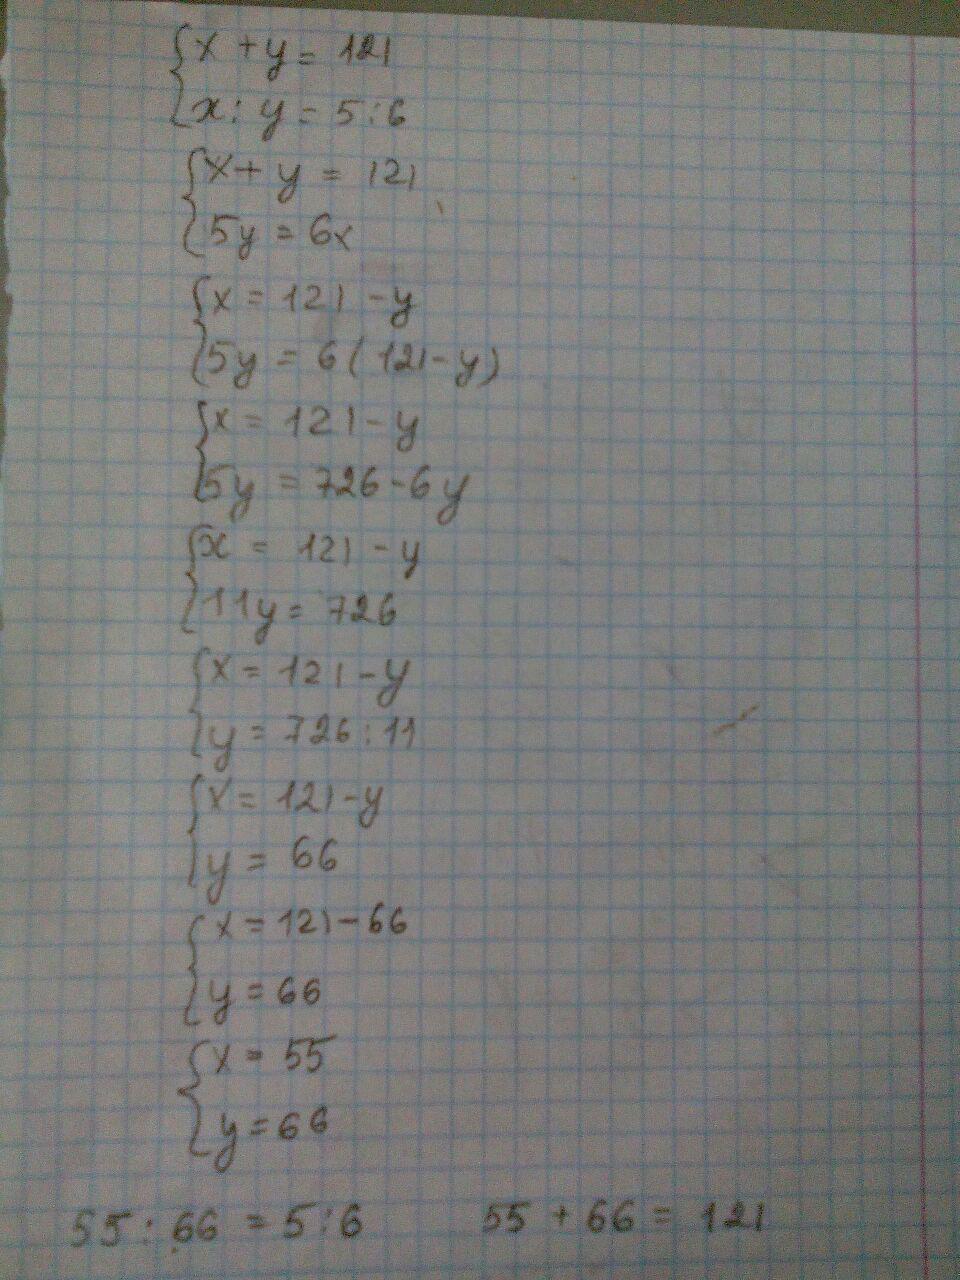 x + y = 121
x : y = 5 : 6
x + y = 121
5y = 6x
x = 121 - y
5y = 6(121 - y)
x = 121 - y
5y = 726 - 6y
x = 121 - y
11y = 726
x = 121 - y
y = 726 : 11
x = 121 - y
y = 66
x = 121 - 66
y = 66
x = 55
y = 66
55 : 66 = 5 : 6 55 + 66 = 121